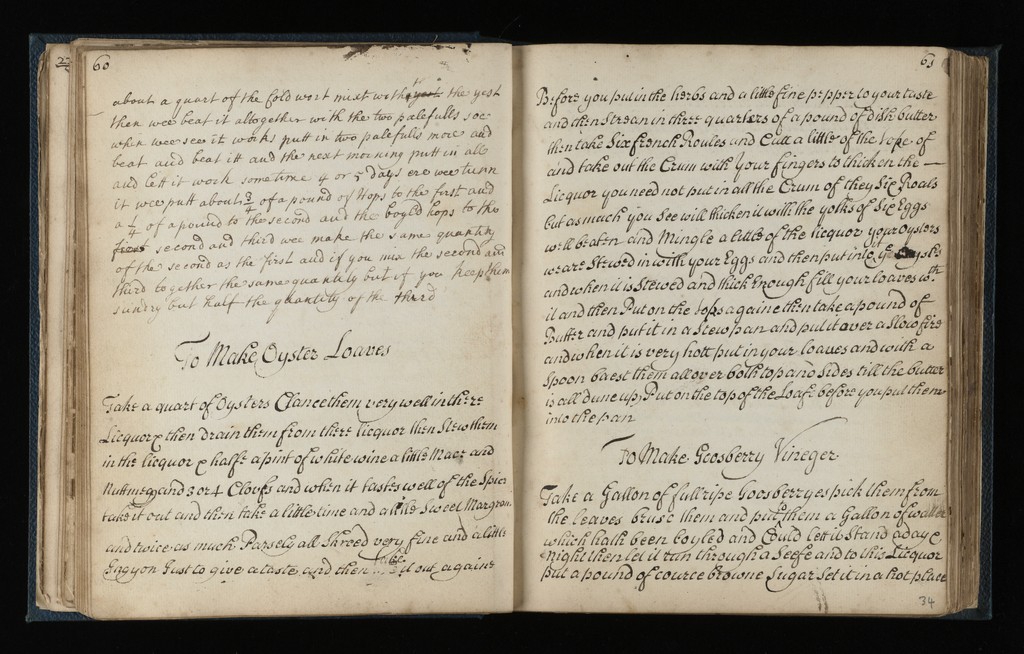 60
about a quart of the Cold wort mixt with the yest
then wee beat it altogether with the two palefulls soe
when wee see it works putt in two palefulls more and
beat and beat itt and the next morning putt in all
and lett it work sometime 4 or 5 days ere wee tunn
it wee putt about 3/4 of a pound of Hops to the first and
a 1/4 of a pound to the second and the boyled hops to the
first second and third wee make the same quantity
of the second as the first and if you mix the second and
third together the same quantity but if you keep them
sundry but half the quantity of the third
To Make Oyster Loaves
Take a quart of Oysters Clance them very well in there
Licquor & then drain them from there licquor then Stew them
in the licquor & halfe a pint of white wine a little Mace and
Nuttmegg and 3 or 4 Cloufs and when it tastes well of the Spice
take it out and then take a little time and a little Sweet Margrom
and twice as much Parsely all Shreed very fine and a little
Ingyon Just to give a taste and then take it out againe
61
Before you put in the herbs and a little fine pepper to your taste
and then Strean in three quarters of a pound of dish butter
then take Six french Roules and Cutt a little of the tope of
and take out the Crum with your fingers to thicken the
Licquor you need not put in all the Crum of they Six Roals
but as much you See will thicken it with the yolks of Six Eggs
well beaten and Mingle a little of the licquor your Oysters
weare Stewed in with your Eggs and then put it into ye
and when it is Stewed and thick Enough fill your loaves wth
it and then Put on the tops againe then take a pound of
Butter and put it in a Stew pan and put it over a Slow fire
and when it is very hott put in your loaves and with a
Spoon baest them all over both top and Sides till the butter
is all dune up Put on the top of the Loafe before you put them
into the pan
To Make Goosberry Vineger
Take a Gallon of full ripe Goosberryes pick them from
the leaves bruse them and put them a Gallon of watter
which hath been boyled and Could lett it Stand a day &
night then let it run through a Seefe and to this Licquor
put a pound of cource Browne Sugar Set it in a hot place
34